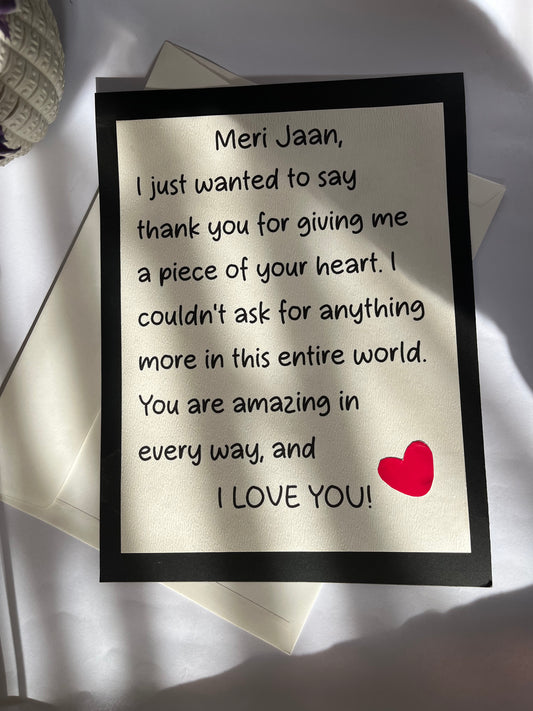 Meri Jaan,
I just wanted to say
thank you for giving me
a piece of your heart. I
couldn't ask for anything
more in this entire world.
You are amazing in
every way, and
I LOVE YOU!